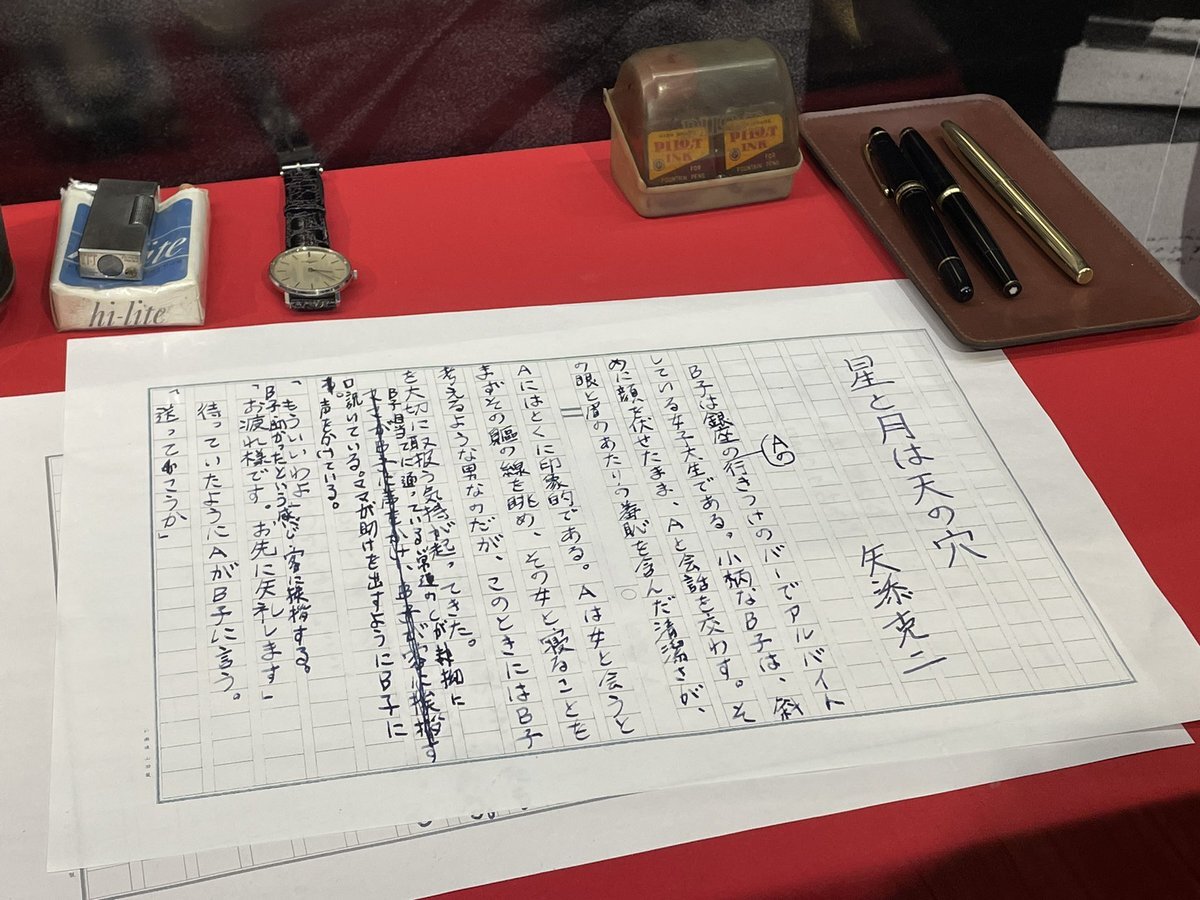 hi-lite
PILOT
INK
FOR
FOUNTAIN PENS
PILOT
INK
FOR
FOUNTAIN PENS
星と月は天の穴
矢添克二
Aの
B子は銀座の行きつけのバーでアルバイト
している女子大生である。小柄なB子は、斜
めに顔を伏せたまま、Aと会話を交わす。そ
の眼と眉のあたりの羞恥を含んだ清潔さが、
Aにはとくに印象的である。Aは女と会うと
まずその軀の線を眺め、その女と寝ることを
考えるような男なのだが、このときにはB子
を大切に取扱う気持が起ってきた。
B子目当てに通っている常連の
口説いている。ママが助けを出すようにB子に
声をかけている。
「もういいわよ」
B子助かったという感じ 客に挨拶する。
「お疲れ様です。お先に失礼します」
待っていたようにAがB子に言う。
「送って行こうか」